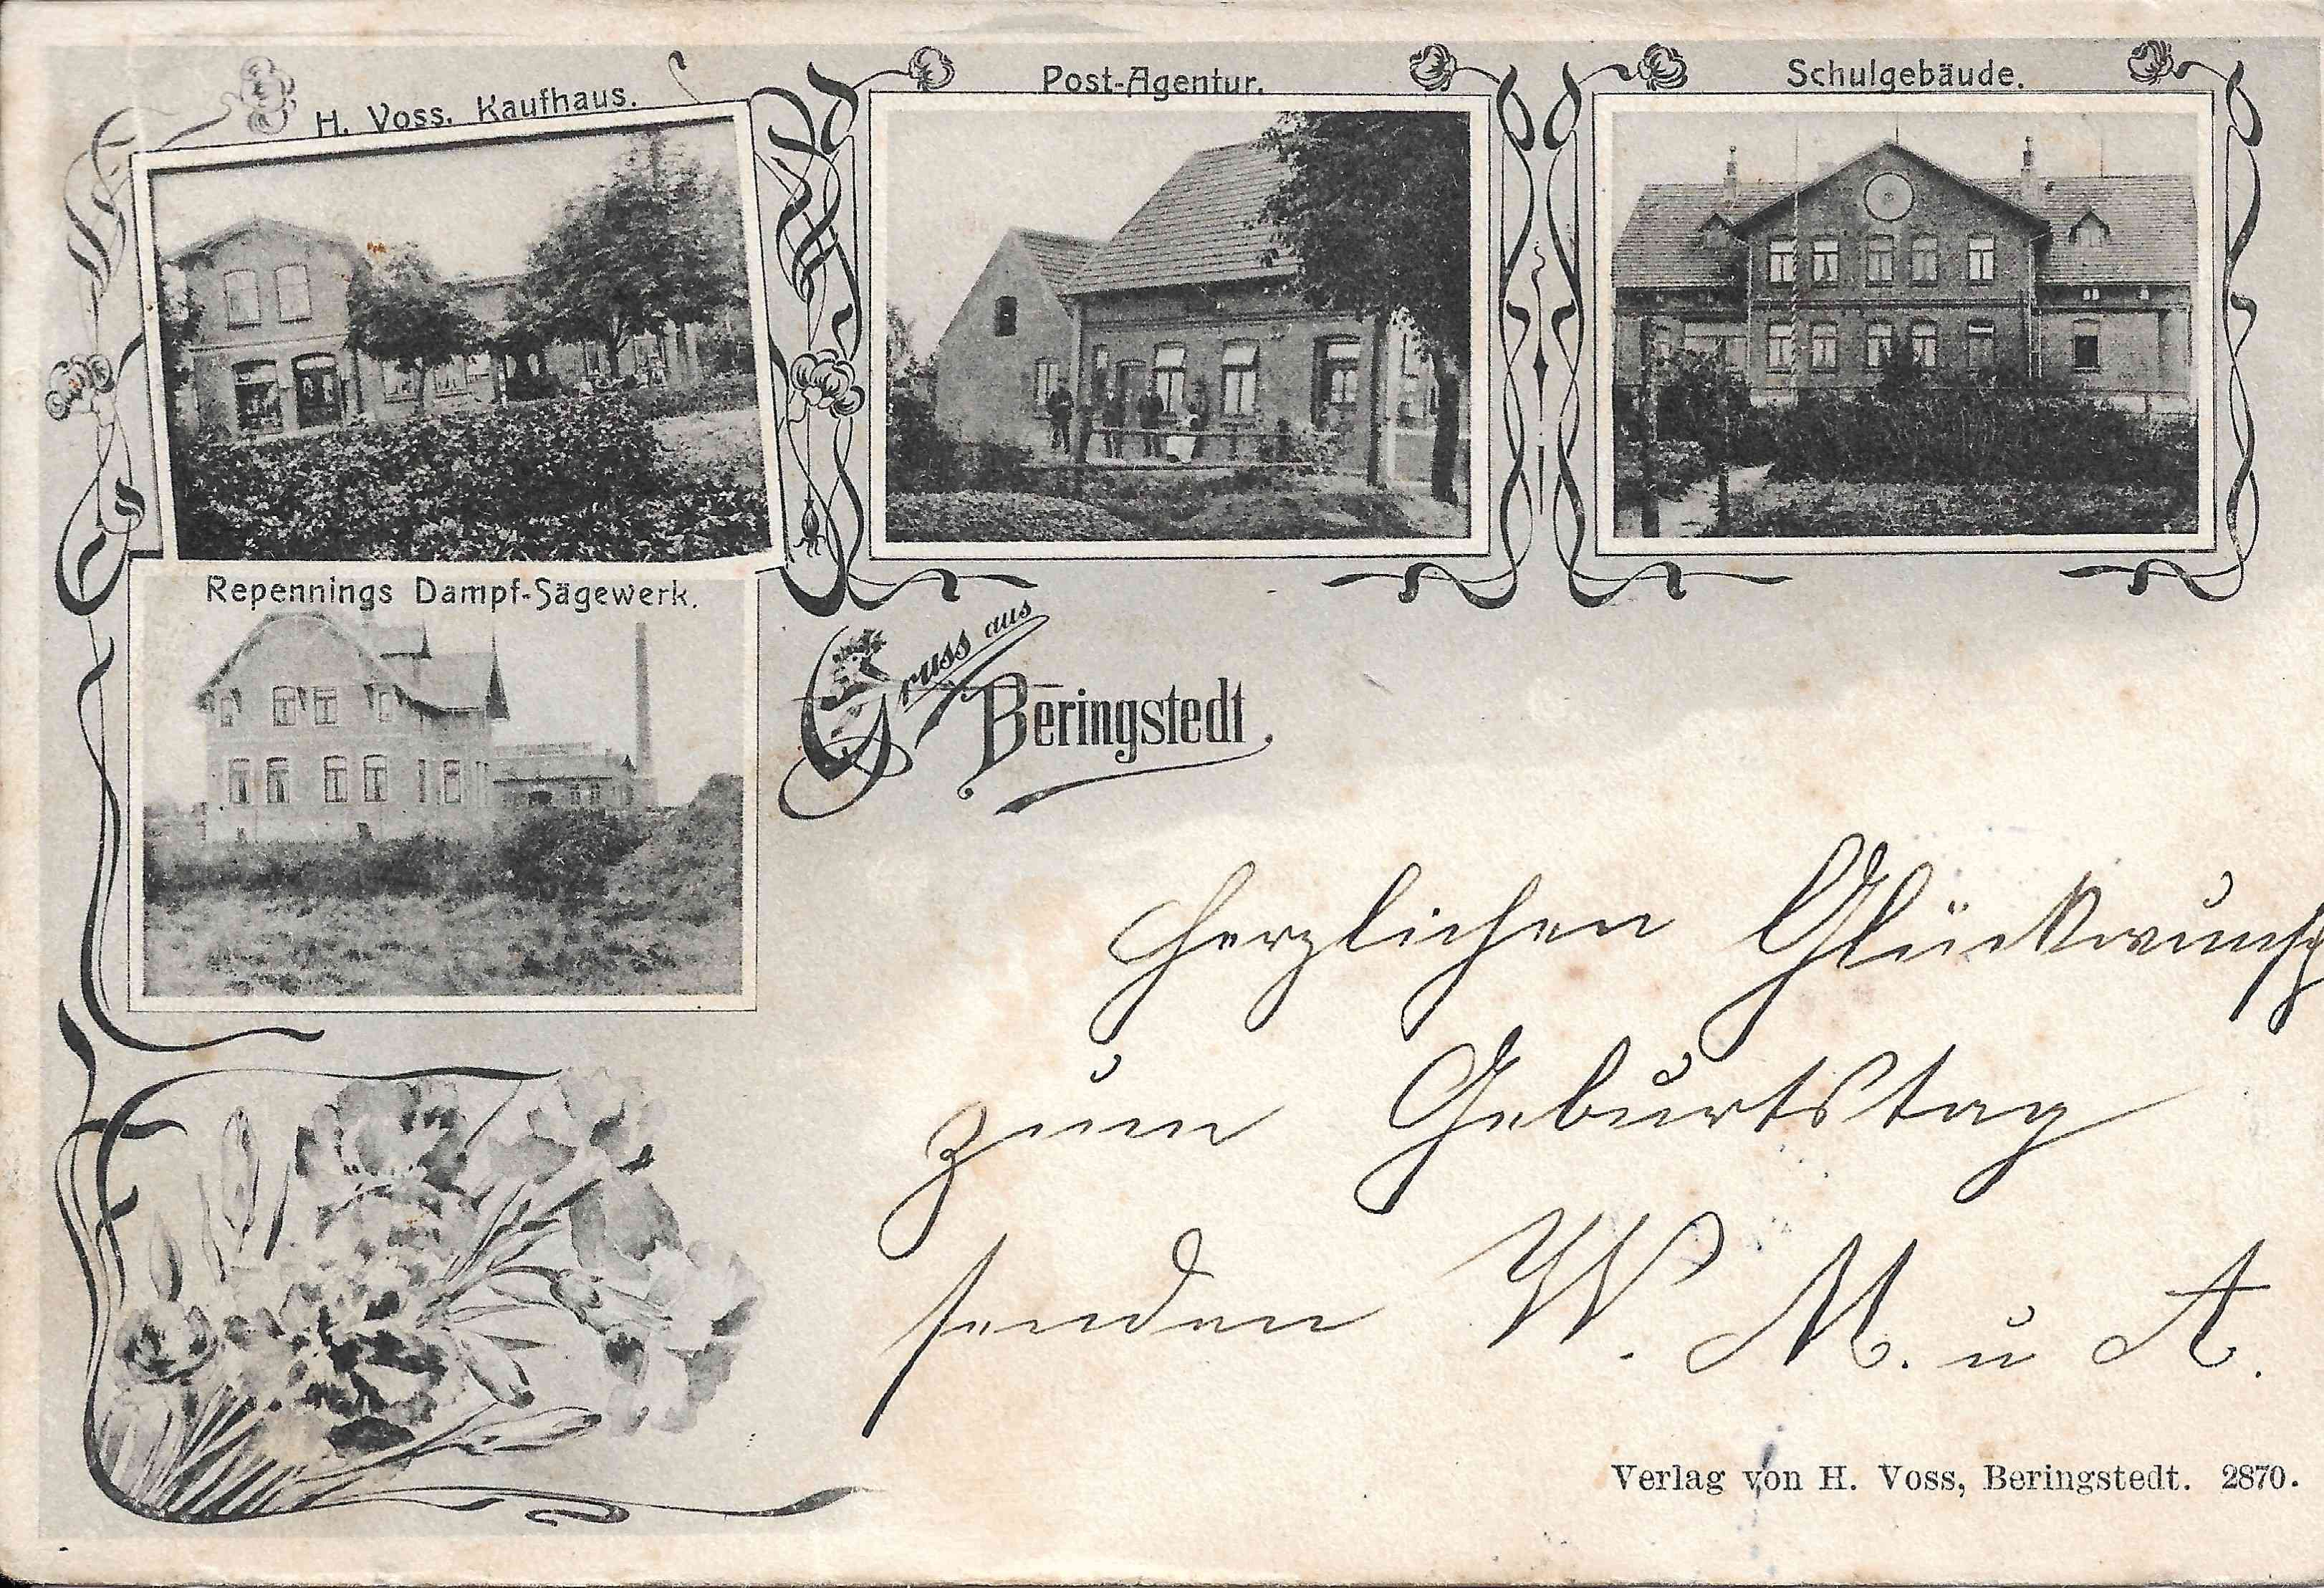 H. Voss. Kaufhaus.
Post-Agentur.
Schulgebäude.
Repennings Dampf-Sägewerk.
Gruss aus
Beringstedt.
Herzlichen Glückwunsch
zum Geburtstag
senden W. M. u A.
Verlag von H. Voss, Beringstedt. 2870.